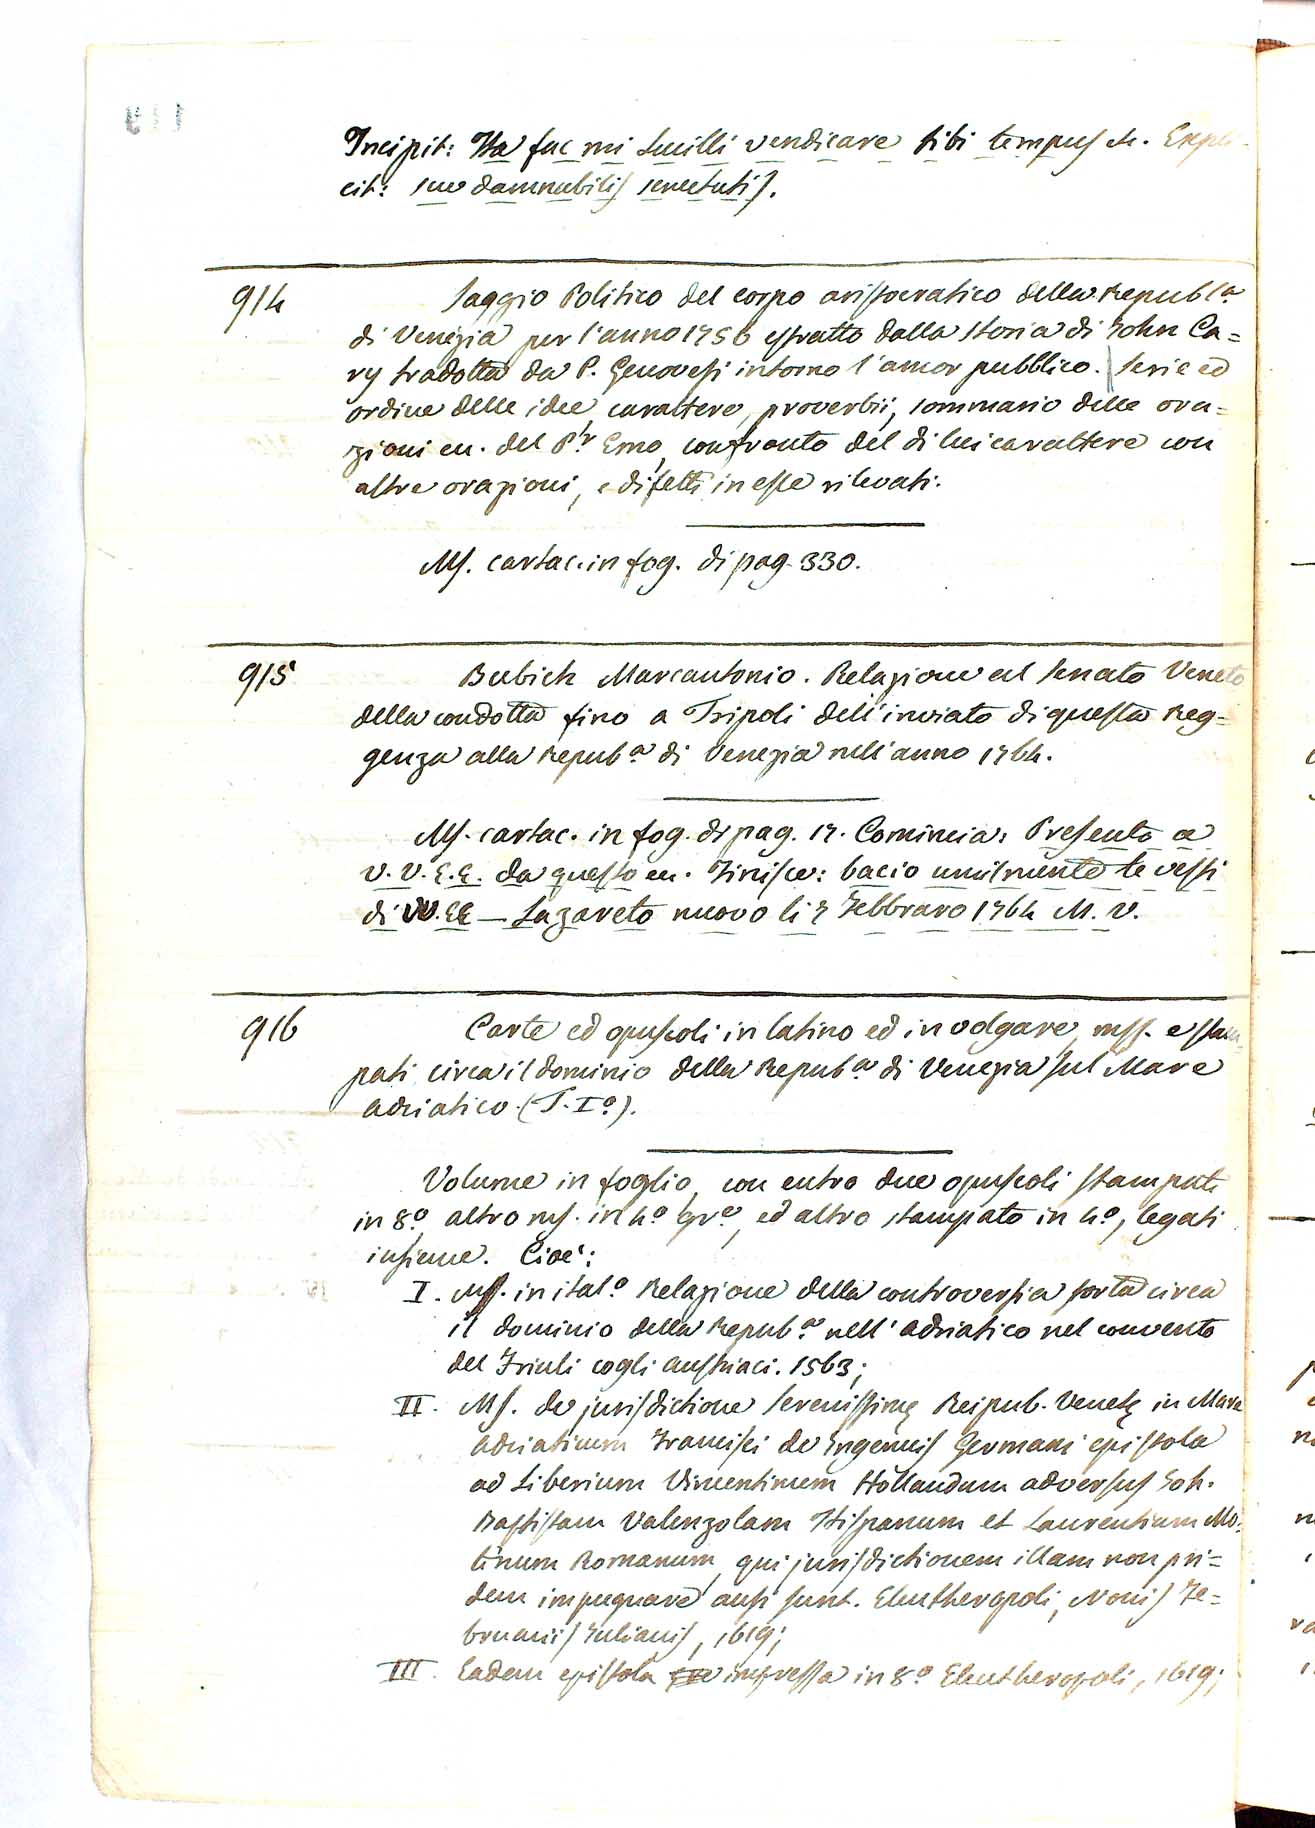 Incipit: Ita fac mi Lucilli vendicare tibi tempus etc. Expli-
cit: sue damnabilis senectutis.
914
Saggio Politico del corpo aristocratico della Republ.a
di Venezia per l'anno 1756 estratto dalla storia di John Ca=
ry tradotta da P. Genovesi intorno l'amor pubblico. Serie ed
ordine delle idee, carattere, proverbii, sommario delle ora=
zioni ec. del P.r Emo, confronto del di lui carattere con
altre orazioni, e difetti in esse rilevati.
Ms. cartac. in fog. di pag. 330.
915
Bubich Marcantonio. Relazione al Senato Veneto
della condotta fino a Tripoli dell'inviato di questa Reg=
genza alla Repub.a di Venezia nell'anno 1764.
Ms. cartac. in fog. di pag. 17. Comincia: Presento a
V. V. E.E. da questo ec. Finisce: bacio umilmente le vesti
di VV. EE — Lazareto nuovo li 7 Febbraro 1764 M. V.
916
Carte ed opuscoli in latino ed in volgare, mss. e stam-
pati circa il dominio della Repub.a di Venezia sul Mare
adriatico. (T. I.o).
Volume in foglio, con entro due opuscoli stampati
in 8.o, altro ms. in 4.o gr.e, ed altro stampato in 4.o, legati
insieme. Cioè:
I. Ms. in ital.o Relazione della controversia sorta circa
il dominio della Repub.a nell'adriatico nel convento
del Friuli cogli austriaci. 1563;
II. Ms. de jurisdictione Serenissimę Reipub. Venetę in Mare
adriaticum Francisci de Ingenuis Germani epistola
ad Liberium Vincentinum Hollandum adversus Joh.
Baptistam Valenzolam Hispanum et Laurentium Mo=
tinum Romanum, qui jurisdictionem illam non pri=
dem impugnare ausi sunt. Eleutheropoli, Nonis Fe=
bruariis Julianis, 1619;
III. Eadem epistola impressa in 8.o Eleutheropoli, 1619;